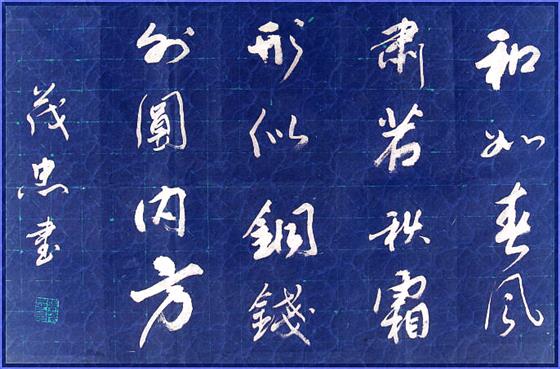 和如春风
肃若秋霜
形似銅錢
外圓内方
茂忠書